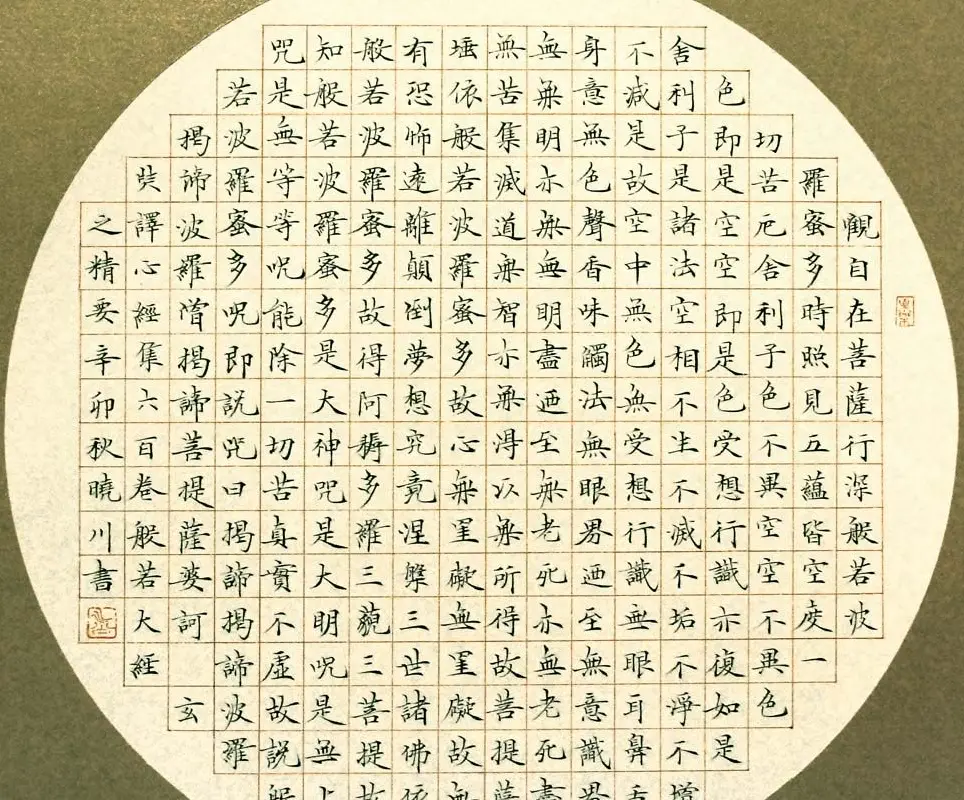 觀自在菩薩行深般若波
羅蜜多時照見五蘊皆空度一
切苦厄舍利子色不異空空不異色
色即是空空即是色受想行識亦復如是
舍利子是諸法空相不生不滅不垢不淨不增
不減是故空中無色無受想行識無眼耳鼻舌
身意無色聲香味觸法無眼界迺至無意識界
無無明亦無無明盡迺至無老死亦無老死盡
無苦集滅道無智亦無得以無所得故菩提薩
埵依般若波羅蜜多故心無罣礙無罣礙故無
有恐怖遠離顛倒夢想究竟涅槃三世諸佛依
般若波羅蜜多故得阿耨多羅三藐三菩提故
知般若波羅蜜多是大神咒是大明咒是無上
咒是無等等咒能除一切苦真實不虛故說般
若波羅蜜多咒即說咒曰揭諦揭諦波羅
揭諦波羅僧揭諦菩提薩婆訶 玄
奘譯心經集六百卷般若大經
之精要辛卯秋曉川書